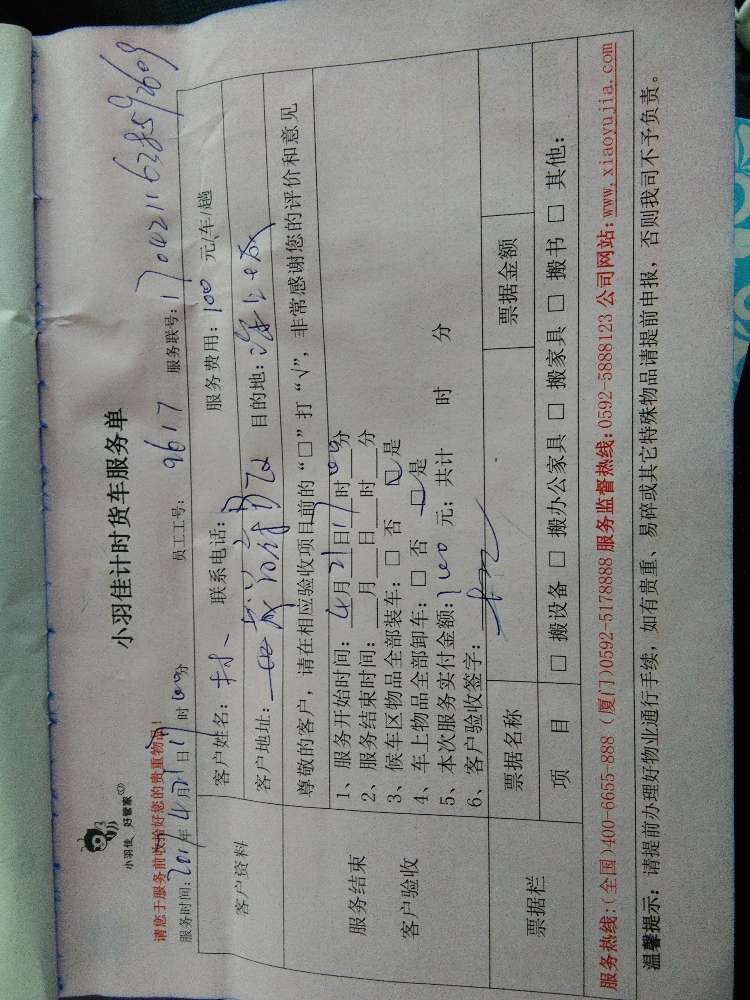 小羽佳 好管家
小羽佳计时货车服务单
请您于服务前收拾好您的贵重物品！
服务时间: 年4月21日17时00分 员工工号: 9617 服务联号: 1704211628592609
客户资料
客户姓名: 联系电话: 服务费用: 100 元/车/趟
客户地址: 目的地:
尊敬的客户，请在相应验收项目前的“□”打“√”，非常感谢您的评价和意见
服务结束
客户验收
1、服务开始时间: 4月21日17时00分
2、服务结束时间: 月 日 时 分
3、候车区物品全部装车: □ 否 □是
4、车上物品全部卸车: □ 否 □是
5、本次服务实付金额: 100 元; 共计 时 分
6、客户验收签字:
票据栏
票据名称 票据金额
项 目 □ 搬设备 □ 搬办公家具 □ 搬家具 □ 搬书 □ 其他:
服务热线:(全国)400-6655-888 (厦门)0592-5178888 服务监督热线:0592-5888123 公司网站:www.xiaoyujia.com
温馨提示: 请提前办理好物业通行手续，如有贵重、易碎或其它特殊物品请提前申报，否则我司不予负责。